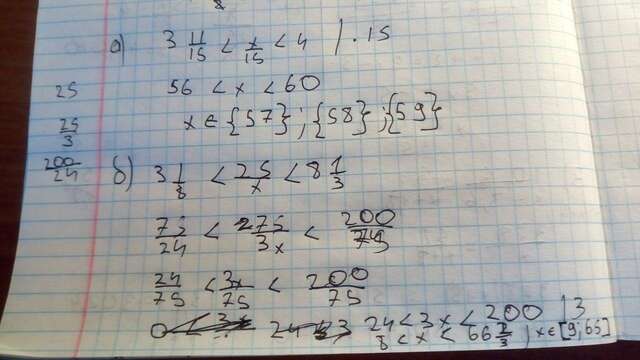 а) 3 11/15 < x/15 < 4 | · 15
25 56 < x < 60
25/3 x ∈ {57}; {58}; {59}
200/24 б) 3 1/8 < 25/x < 8 1/3
75/24 < 275/3x < 200/
24/75 < 3x/75 < 200/75
0 < 3x 24 < 3 24 < 3x < 200 | 3
8 < x < 66 2/3; x ∈ [9; 65]